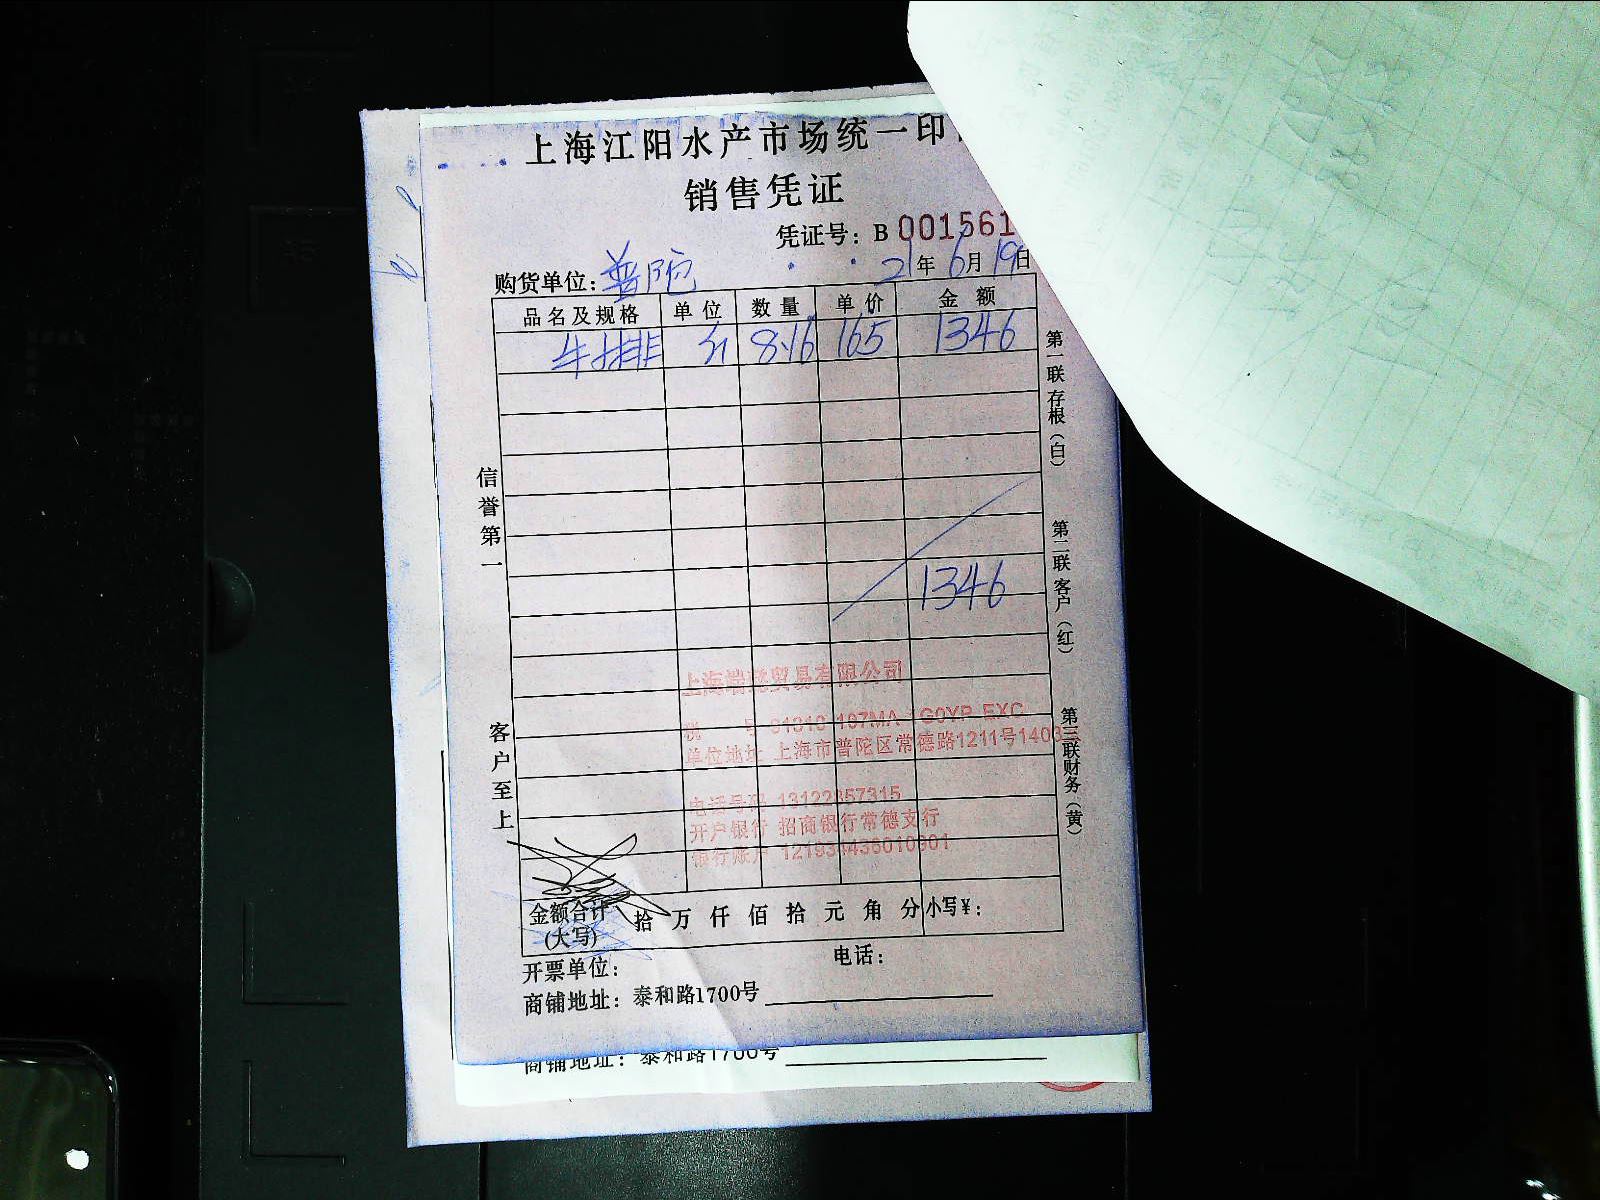 上海江阳水产市场统一印
销售凭证
凭证号：B 001561
购货单位：普陀 21年6月19日
品名及规格 单位 数量 单价 金额
牛排 8.16 165 1346
1346
信誉第一
客户至上
第一联存根（白）
第二联客户（红）
第三联财务（黄）
上海 贸易有限公司
单位地址 上海市普陀区常德路1211号1403
电话号码
开户银行 招商银行常德支行
银行账户
金额合计(大写) 拾 万 仟 佰 拾 元 角 分 小写￥：
开票单位： 电话：
商铺地址：泰和路1700号
商铺地址：泰和路1700号